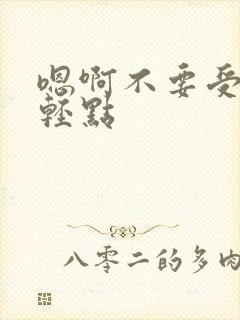 嗯啊不要受
輕點
八零二的多肉